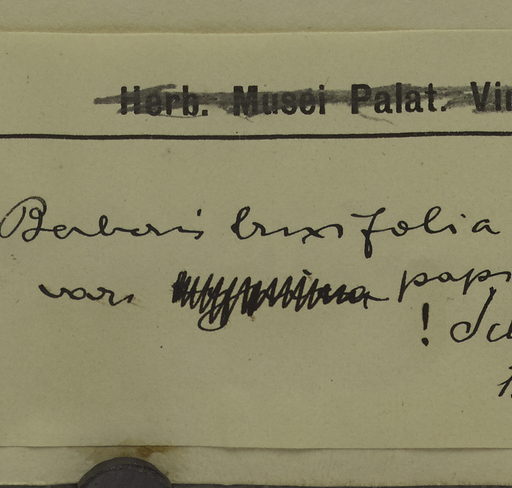 Herb. Musei Palat. Vin
Berberis buxifolia
var. pap
!